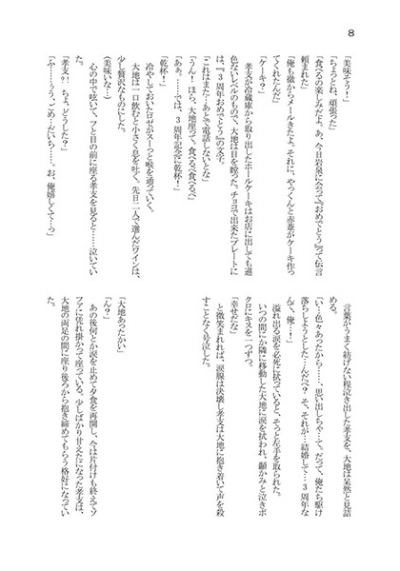 8
「美味そう!」
「ちょっとね、頑張った」
「食べるの楽しみだよ。あ、今日岩泉に会って『おめでとう』って伝言
頼まれた」
「俺も徹からメールきたよ。それに、やっくんと赤葦がケーキ作っ
てくれたんだ」
「ケーキ?」
孝支が冷蔵庫から取り出したホールケーキはお店に出しても遜
色ないレベルのもので、大地は目を瞠った。チョコで出来たプレートに
は、『3周年おめでとう』の文字。
「これはまた…あとで電話しないとな」
「うん!ほら、大地座って。食べるべ食べるべ」
「あぁ。……では、3周年記念に乾杯!」
「乾杯!」
冷やしておいたロゼがスーっと喉を通っていく。
大地は一口飲むと小さく息を吐く。先日二人で選んだワインは、
少し贅沢なものにした。
(美味いな…)
心の中で呟いて、フと目の前に座る孝支を見ると……泣いてい
た。
「孝支?!ちょ、どうした?」
「ふ……うぅ、ごめ…だいち……お、俺嬉しくて…っ」
言葉がうまく続けない程泣き出した孝支を、大地は呆然と見詰
める。
「い…色々あったから……、思い出しちゃ…て。だって、俺たち駆け
落ちしようとした…んだべ?そ、それが…結婚して…3周年な
んて、俺…!」
溢れ出る涙を必死に拭っていると、そっと左手を取られた。
いつの間にか隣に移動した大地に涙を拭われ、顳かみと泣きボ
クロにキスを一つずつ。
「幸せだな」
と微笑まれれば、涙腺は決壊し孝支は大地に抱き着いて声を殺
すことなく号泣した。
「大地あったかい」
「ん?」
あの後何とか涙を止めて夕食を再開し、今は片付けも終えてソ
ファに凭れ掛かって座っている。少しばかり甘えたになった孝支は、
大地の両足の間に座り後ろから抱き締めてもらう格好になってい
た。